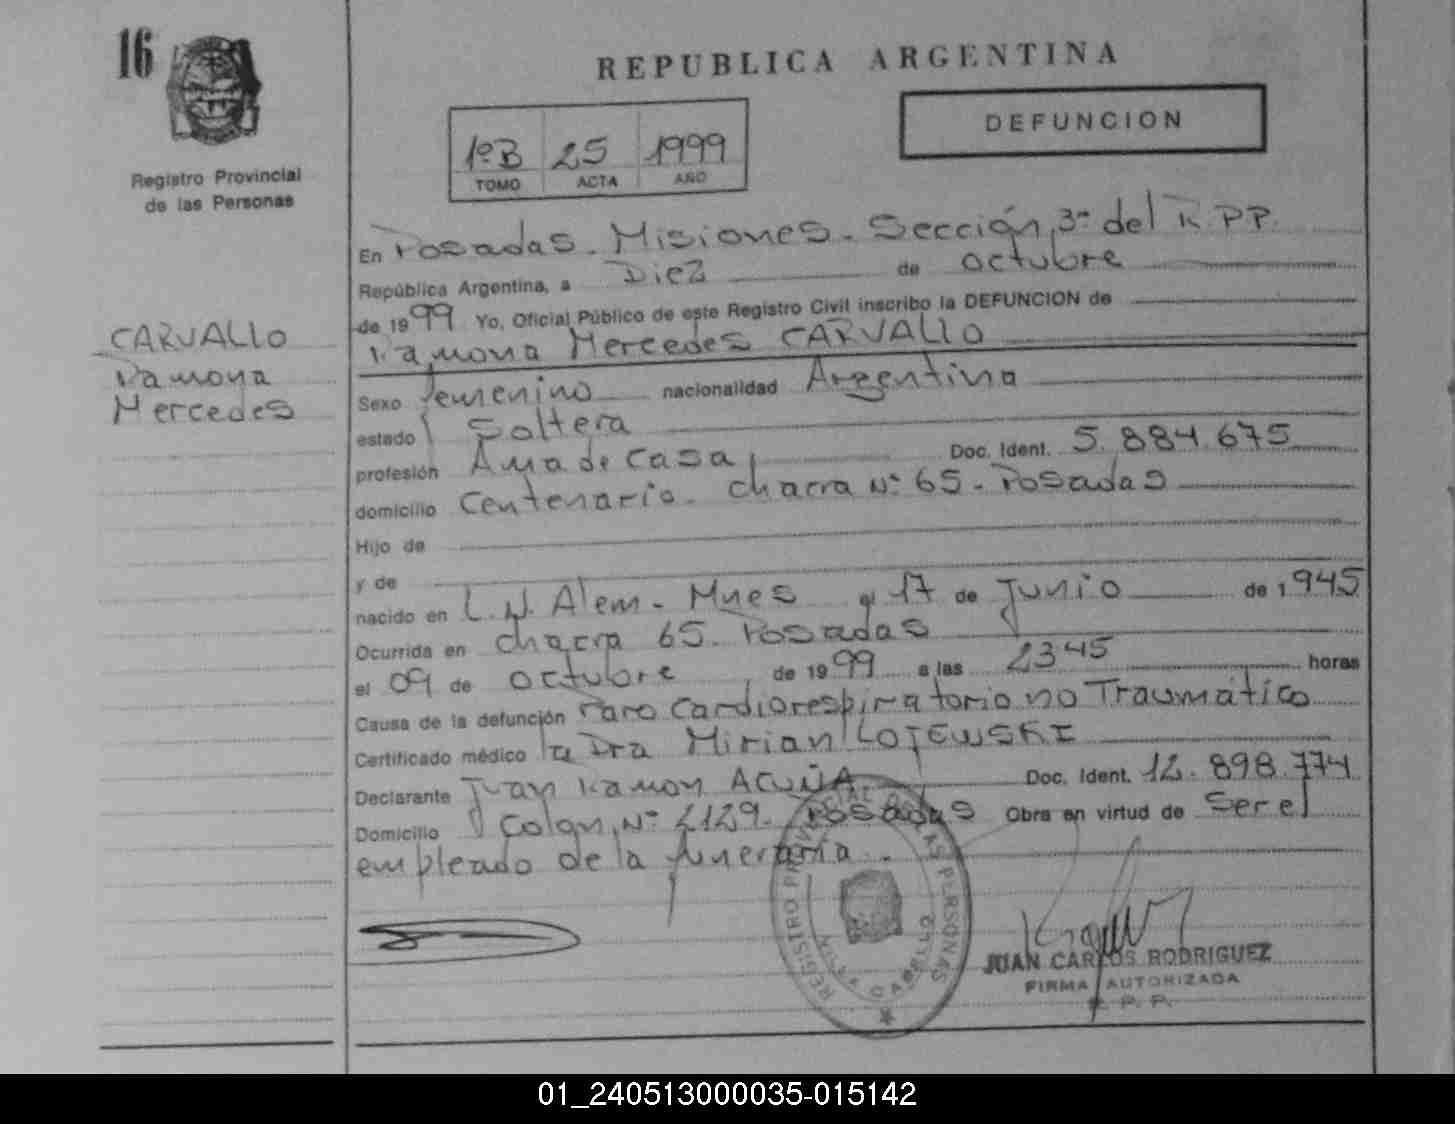 16
Registro Provincial
de las Personas
CARVALLO
Ramona
Mercedes
REPUBLICA ARGENTINA
DEFUNCION
1ºB 25 1999
TOMO ACTA AÑO
En Posadas - Misiones - Sección 3ª del R.P.P.
República Argentina, a Diez de octubre
de 1999 Yo, Oficial Público de este Registro Civil inscribo la DEFUNCION de
Ramona Mercedes CARVALLO
Sexo femenino nacionalidad Argentina
estado Soltera
profesión Ama de casa Doc. Ident. 5.884.675
domicilio Centenario - chacra Nº 65 - Posadas
Hijo de
y de
nacido en L.N. Alem - Mnes el 17 de Junio de 1945
Ocurrida en chacra 65. Posadas
el 09 de octubre de 1999 a las 23 45 horas
Causa de la defunción Paro Cardiorespiratorio no Traumático
Certificado médico la Dra Mirian LOJEWSKI
Declarante Juan Ramon ACUÑA Doc. Ident. 12.898.774
Domicilio Colon Nº 2129. Posadas Obra en virtud de Ser el
empleado de la funeraria.
REGISTRO PROVINCIAL DE LAS PERSONAS
VILLA CABELLO
JUAN CARLOS RODRIGUEZ
FIRMA AUTORIZADA
R. P. P.
01_240513000035-015142